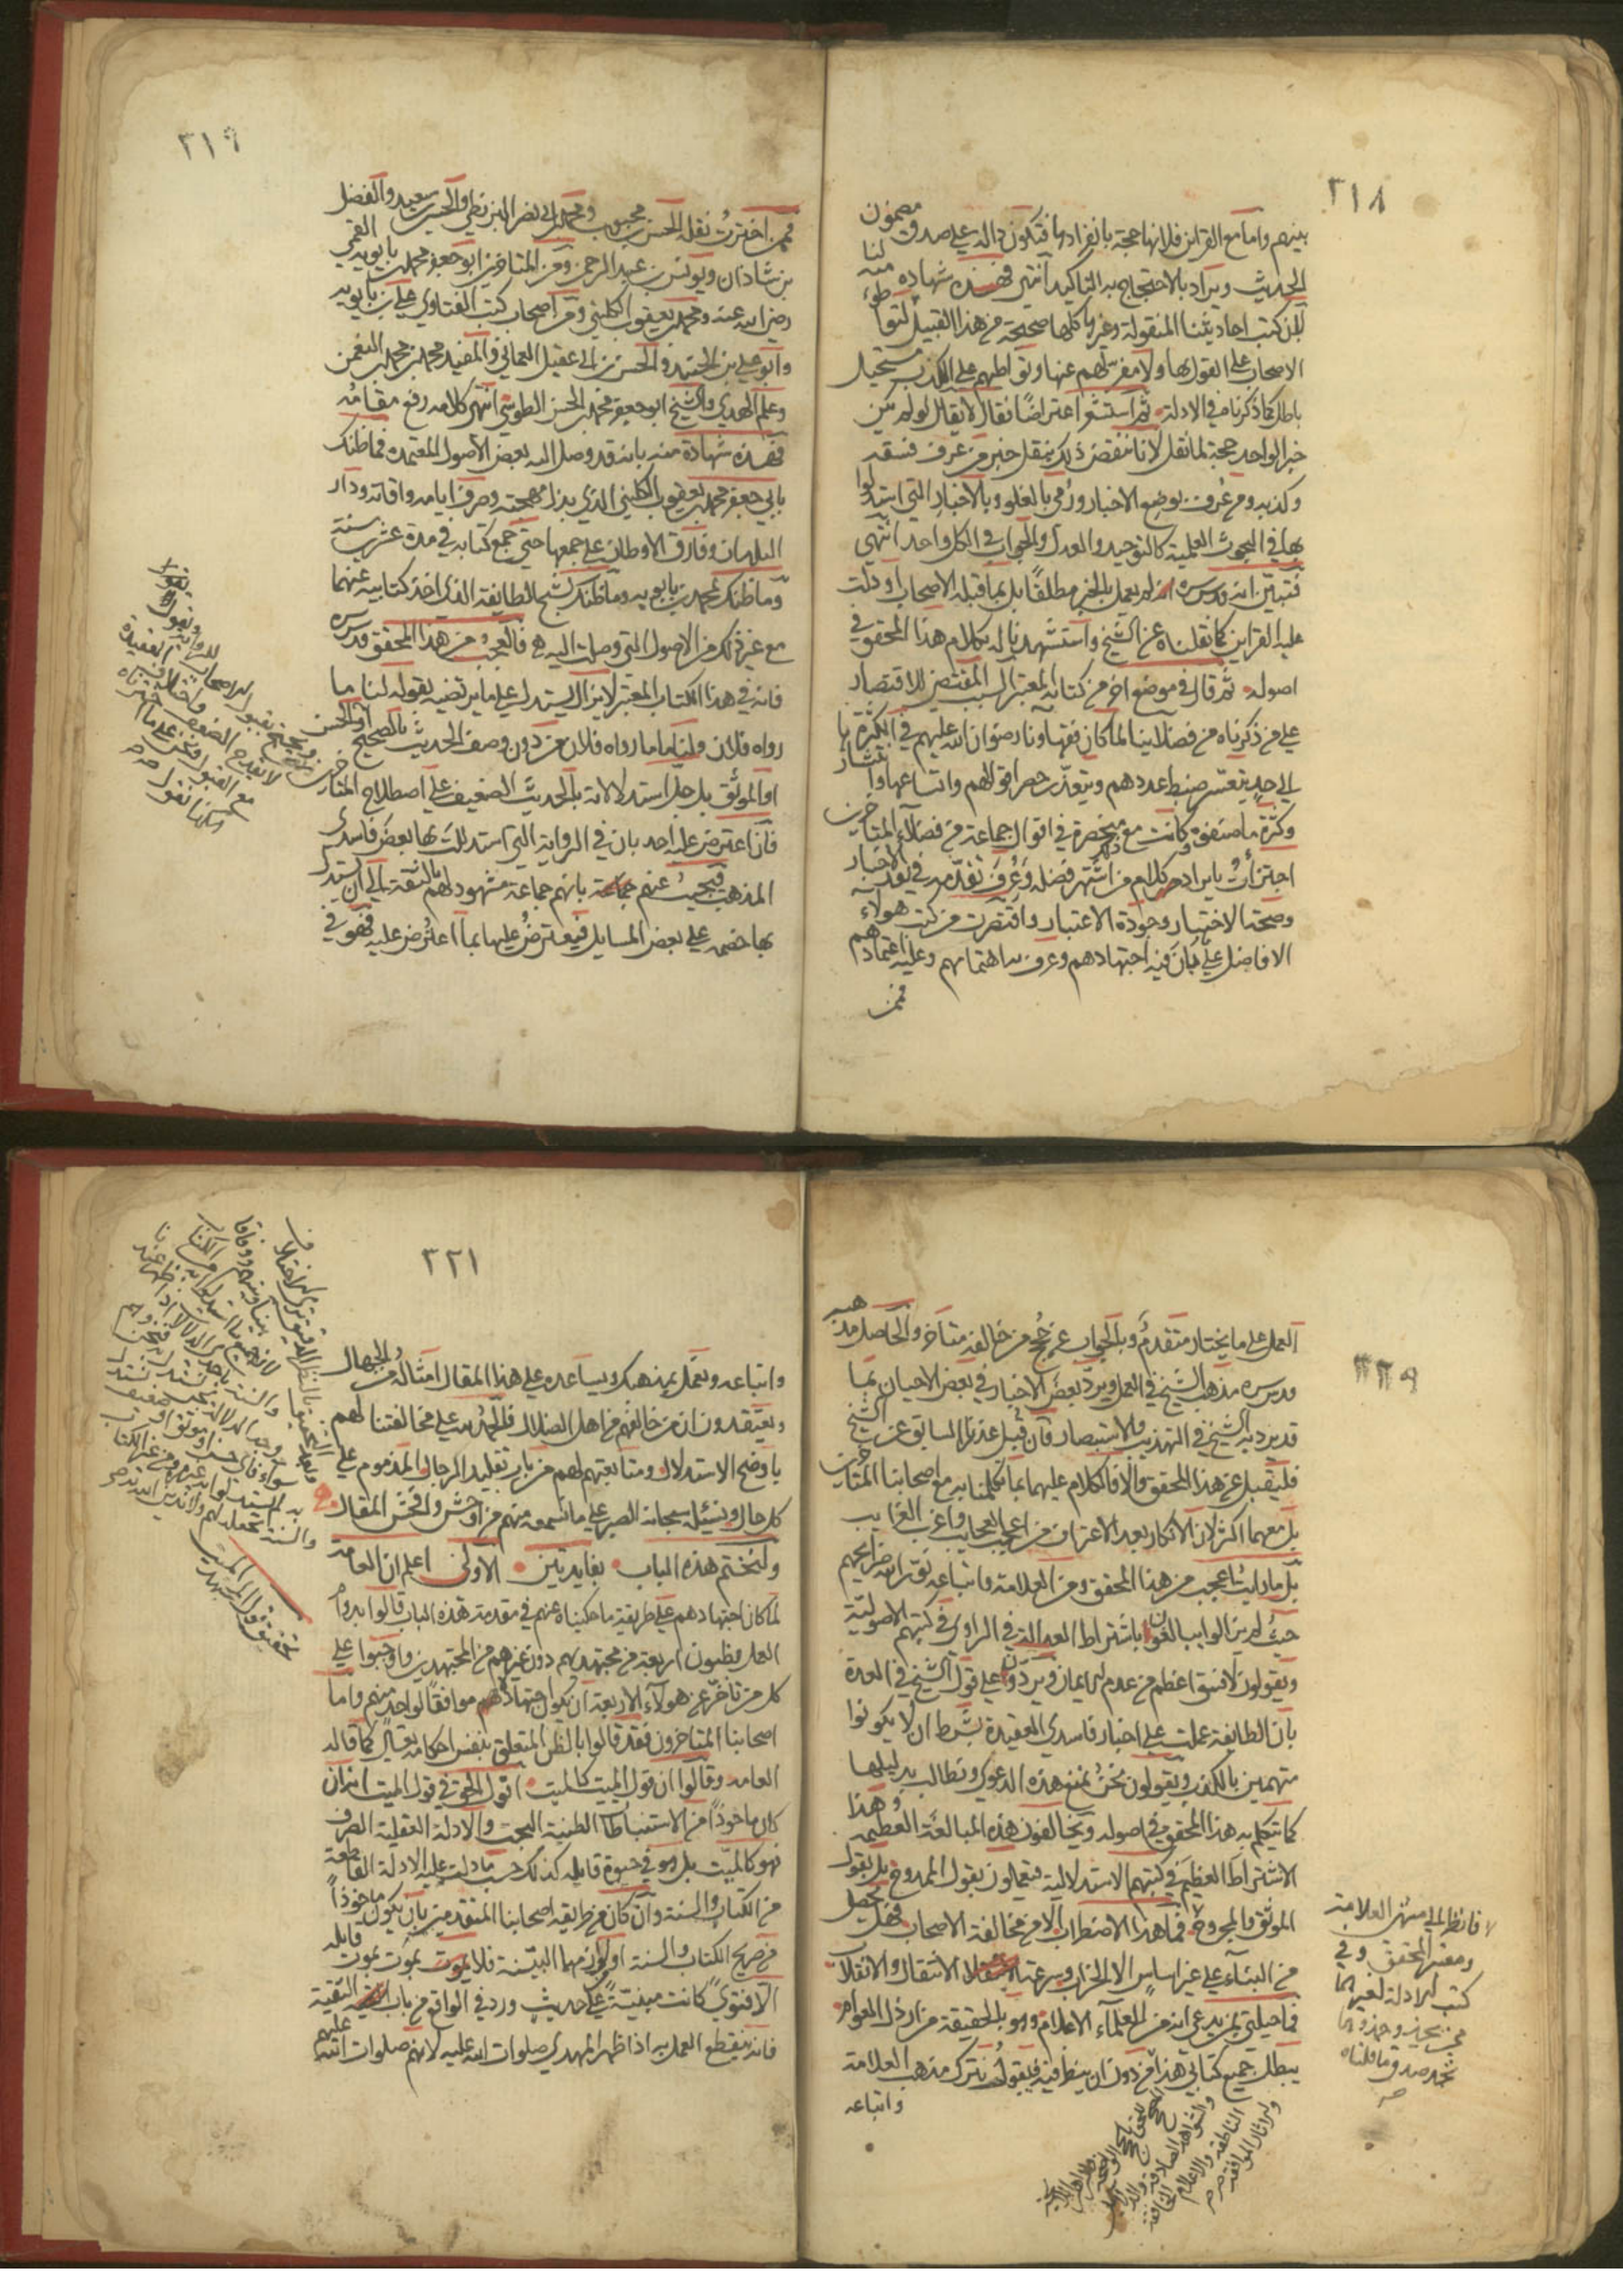 ٣١٨
بينهم واما مع القراين فلانها حجة بانفرادها فتكون دالة على صدق مضمون
الحديث ويراد بالاحتجاج به التاكيد انتهى فهذه شهادة منه لنا
بان كتب احاديثنا المنقولة وغيرها كلها صحيحة من هذا القبيل لتواطؤ
الاصحاب على القول بها ولا مفر لهم عنها وتواطيهم على الكذب مستحيل
باطل كما ذكرنا في الادلة ثم استشعر اعتراضًا فقال لا يقال لو لم يكن
خبر الواحد حجة لما نقل لانا ننقض ذلك بنقل خبر من عرف فسقه
وكذبه ومن عُرف بوضع الاخبار ورُمي بالغلو وبالاخبار التي استدلوا
بها في البحوث العلمية كالتوحيد والعدل والجواب في الكل واحد انتهى
فتبين انه قدس سره لم يعمل بالخبر مطلقًا بل بما قبله الاصحاب او دلت
عليه القراين كما نقلناه عن الشيخ واستشهدنا له بكلام هذا المحقق في
اصوله ثم قال في موضع اخر من كتابه المعتبر السبب المقتضي للاقتصار
على من ذكرناه من فضلاينا لما كان فقهاؤنا رضوان الله عليهم في الكثرة
الى حد يتعسر ضبط عددهم ويتعذر حصر اقوالهم لاتساعها وانتشارها
وكثرة ما صنفوه وكانت مع ذلك منحصرة في اقوال جماعة من فضلاء المتاخرين
اجتزأت بايراد كلام من اشتهر فضله وعُرف تقدمه في نقد الاخبار
وصحة الاختيار وجودة الاعتبار واقتصرت من كتب هؤلاء
الافاضل على ما بان فيه اجتهادهم وعرف به اهتمامهم وعليه اعتمادهم
فمن
٣١٩
فمن اخترت نقله الحسن بن محبوب ومحمد بن ابي نصر البزنطي والحسين بن سعيد والفضل
بن شاذان ويونس بن عبد الرحمن ومن المتاخرين ابو جعفر محمد بن بابويه القمي
رضي الله عنه ومحمد بن يعقوب الكليني ومن اصحاب كتب الفتاوي علي بن بابويه
وابو علي بن الجنيد والحسن بن ابي عقيل العماني والمفيد محمد بن محمد بن النعمن
وعلم الهدى والشيخ ابو جعفر محمد بن الحسن الطوسي انتهى كلامه رفع مقامه
فهذه شهادة منه بانه قد وصل اليه بعض الاصول المعتمدة فما ظنك
بابي جعفر محمد بن يعقوب الكليني الذي بذل مهجته وصرف ايامه واوقاته ودار
البلدان وفارق الاوطان على جمعها حتى جمع كتابه في مدة عشرين سنة
وما ظنك بمحمد بن بابويه وما ظنك بشيخ الطايفة الذي اخذ كتابيه عنهما
مع غير ذلك من الاصول التي وصلت اليه فالعجب من هذا المحقق قدس سره
فانه في هذا الكتاب المعتبر لا يزال يستدل على ما يرتضيه بقوله لنا ما
رواه فلان ولنا ما رواه فلان من دون وصف الحديث بالصحيح او الحسن
او الموثق بل جل استدلالاته بالحديث الضعيف على اصطلاح المتاخرين
فان اعترض عليه احد بان في الرواية التي استدللت بها بعض فاسدي
المذهب فيجيب عنهم بانهم جماعة مشهود لهم بالثقة الى ان يستدل
بها خصمه على بعض المسايل فيعترض عليها بما اعترض عليه فهو في
٣٢٠
العمل على ما يختار متقدم وبالجواب عن حجج من خالفه متاخر والحاصل مذهبه
قدس سره مذهب الشيخ في العمل ويرد بعض الاخبار في بعض الاحيان بما
قد يرد به الشيخ في التهذيب والاستبصار فان قُبل عذرنا السابق عن الشيخ
فليقبل عن هذا المحقق والا فالكلام عليهما بما تكلمنا به مع اصحابنا المتاخرين
بل معهما اكثر لان الانكار بعد الاعتراف من اعجب العجايب واغرب الغرايب
بل ما رايت اعجب من هذا المحقق ومن العلامة واتباعه نور الله ضرايحهم
حيث لم يزالوا يبالغون باشتراط العدالة في الراوي في كتبهم الاصولية
ويقولون لا فسق اعظم من عدم الايمان ويردون على قول الشيخ في العدة
بان الطايفة عملت على اخبار فاسدي العقيدة بشرط ان لا يكونوا
متهمين بالكذب ويقولون نحن نمنع هذه الدعوى ونطالب بدليلها
كما تكلم به هذا المحقق في اصوله ويخالفون هذه المبالغة العظيمة وهذا
الاشتراط العظيم في كتبهم الاستدلالية فيعملون بقول الممدوح بل بقول
الموثق والمجروح فما هذا الاضطراب الا من مخالفة الاصحاب فهل يحصل
من البناء على غير اساس الا الخراب وسرعة الانتقال والانقلاب
فما حيلتي بمن يدعي انه من العلماء الاعلام وهو بالحقيقة من ارذل العوام
يبطل جميع كتابي هذا من دون ان ينظر فيه فيقول نترك مذهب العلامة
واتباعه
فانظر الى منتهى العلامة
ومعتبر المحقق وفي
كتب الادلة لغيرهما
تجد صدق ما قلناه
٣٢١
واتباعه ونعمل بمذهبك ويساعده على هذا المقال امثاله من الجهال
ويعتقدون ان من خالفهم من اهل الضلال فالحمد لله على مخالفتنا لهم
باوضح الاستدلال ومتابعتهم لهم من باب تقليد الرجال والمذموم على
كل حال ونسئله سبحانه الصبر على ما نسمعه منهم من اوحش وافحش المقال
ولنختم هذه الباب بفايدتين الاولى اعلم ان العامة
لما كان اجتهادهم على طريقة ما حكيناه عنهم في مقدمة هذه الباب قالوا بدوام
العمل بظنون اربعة من مجتهديهم دون غيرهم من المجتهدين واوجبوا على
كل من تاخر عن هؤلاء الاربعة ان يكون اجتهاده موافقًا لواحد منهم واما
اصحابنا المتاخرون فقد قالوا بالظن المتعلق بنفس احكامه تعالى كما قاله
العامة وقالوا ان قول الميت كالميت اقول الحق في قول الميت انه ان
كان ماخوذًا من الاستنباطات الظنية البحت والادلة العقلية الصرف
فهو كالميت بل هو في حيوة قايله كذلك حسب ما دلت عليه الادلة القاطعة
من الكتاب والسنة وان كان من طريقة اصحابنا المتقدمين بان يكون ماخوذًا
من صريح الكتاب والسنة او لوازمهما البينة فلا يموت بموت قايله
الا فتوى كانت مبنية على حديث ورد في الواقع من باب التقية
فانه ينقطع العمل به اذا ظهر المهدي صلوات الله عليه لانهم صلوات الله عليهم
تحقيق قول الميت